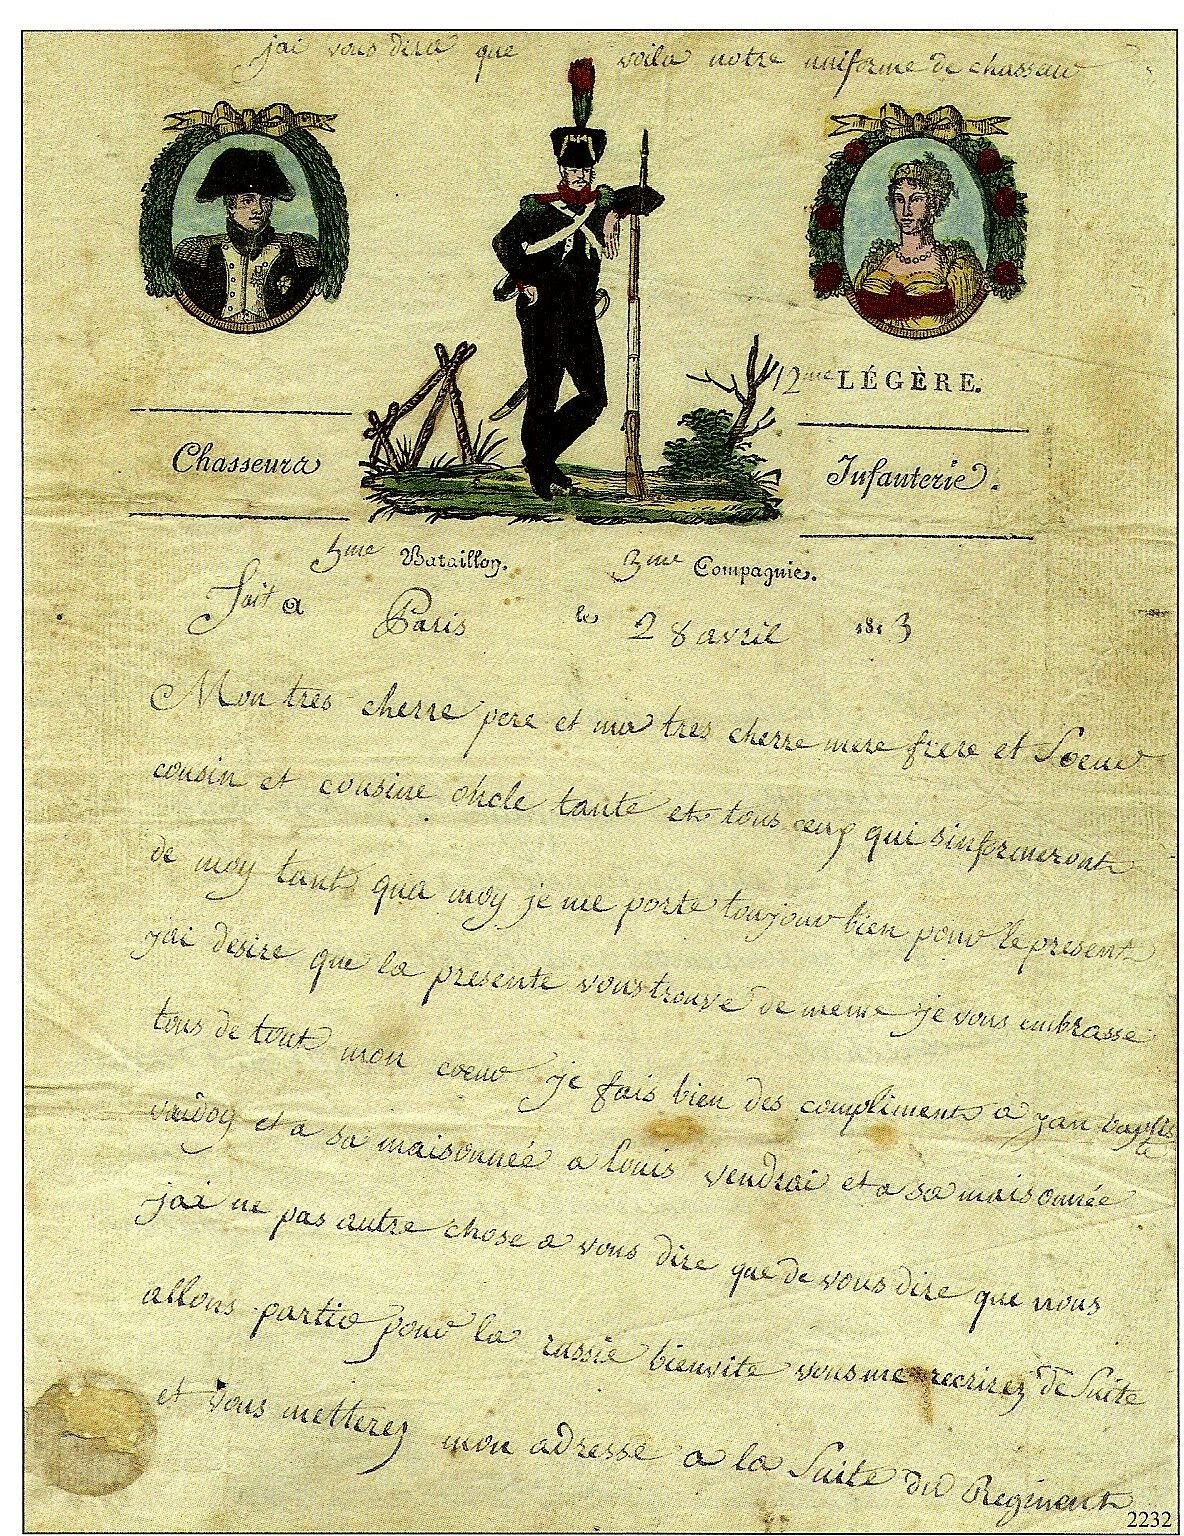 jai vous direz que voila notre uniforme de chasseur
12me LÉGÈRE.
Chasseurs
Infanterie.
5me Bataillon. 3me Compagnie.
fait a Paris le 28 avril 1813
Mon tres cherre pere et ma tres cherre mere frere et Soeur
cousin et cousine oncle tante et tous ceux qui sinformeront
de moy tant qua moy je me porte toujour bien pour le present
jai desire que la presente vous trouve de meme je vous embrasse
tous de tout mon coeur je fais bien des compliments a jan baptiste
et a sa maisonnée a louis vendrai et a sa maisonnée
jai ne pas autre chose a vous dire que de vous dire que nous
allons partir pour la russie bien vite vous me recrirez de Suite
et vous metterez mon adresse a la Suite du Regiment
2232